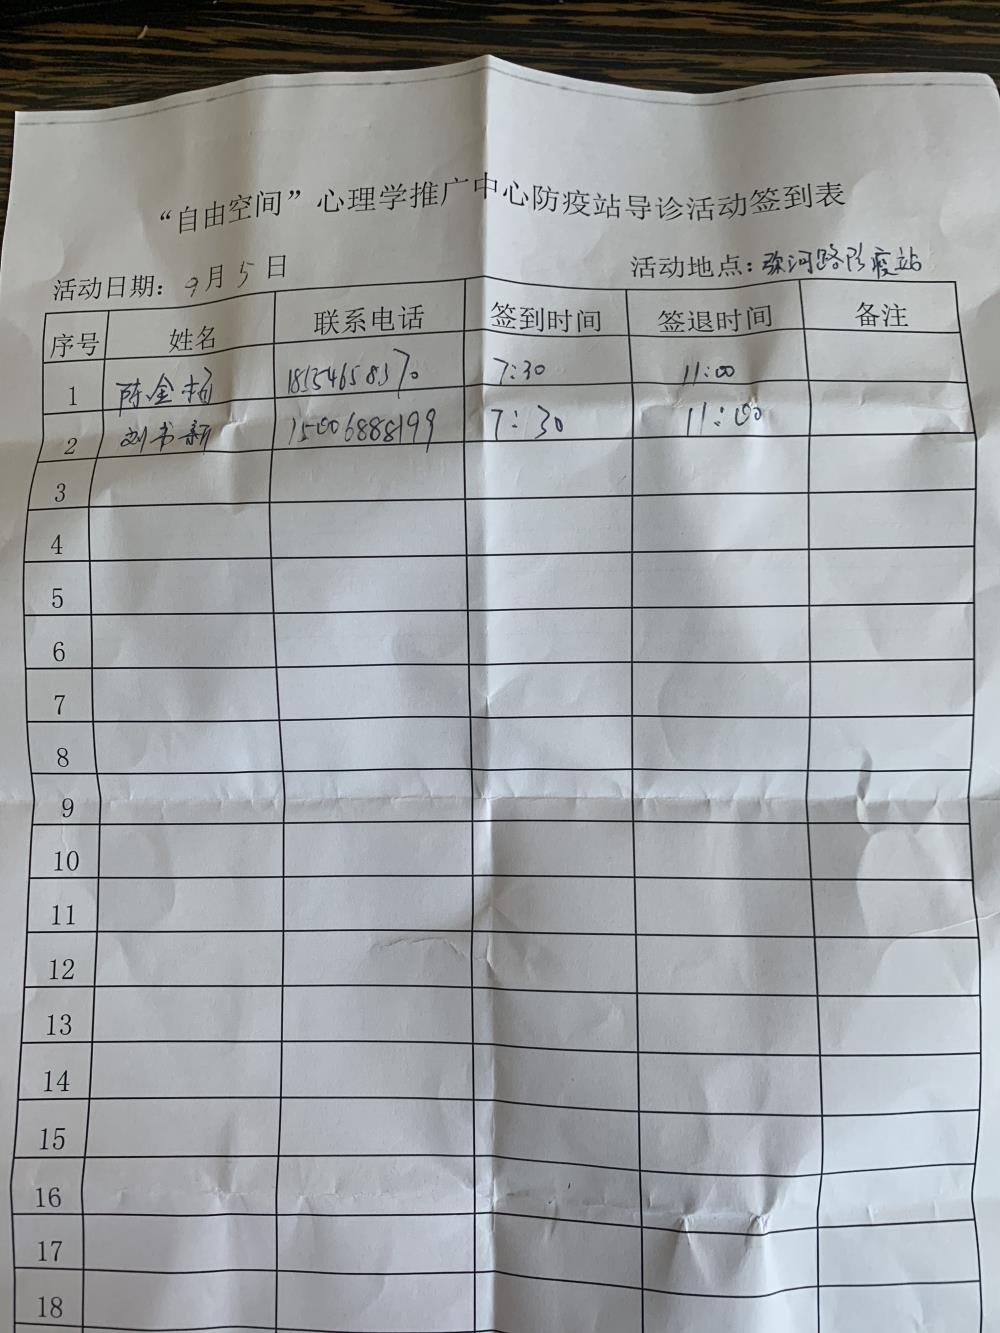 “自由空间”心理学推广中心防疫站导诊活动签到表
活动日期：9月5日 活动地点：弥河路防疫站
序号 姓名 联系电话 签到时间 签退时间 备注
1 陈金杨 18154658370 7:30 11:00
2 刘书新 15006888199 7:30 11:00
3
4
5
6
7
8
9
10
11
12
13
14
15
16
17
18